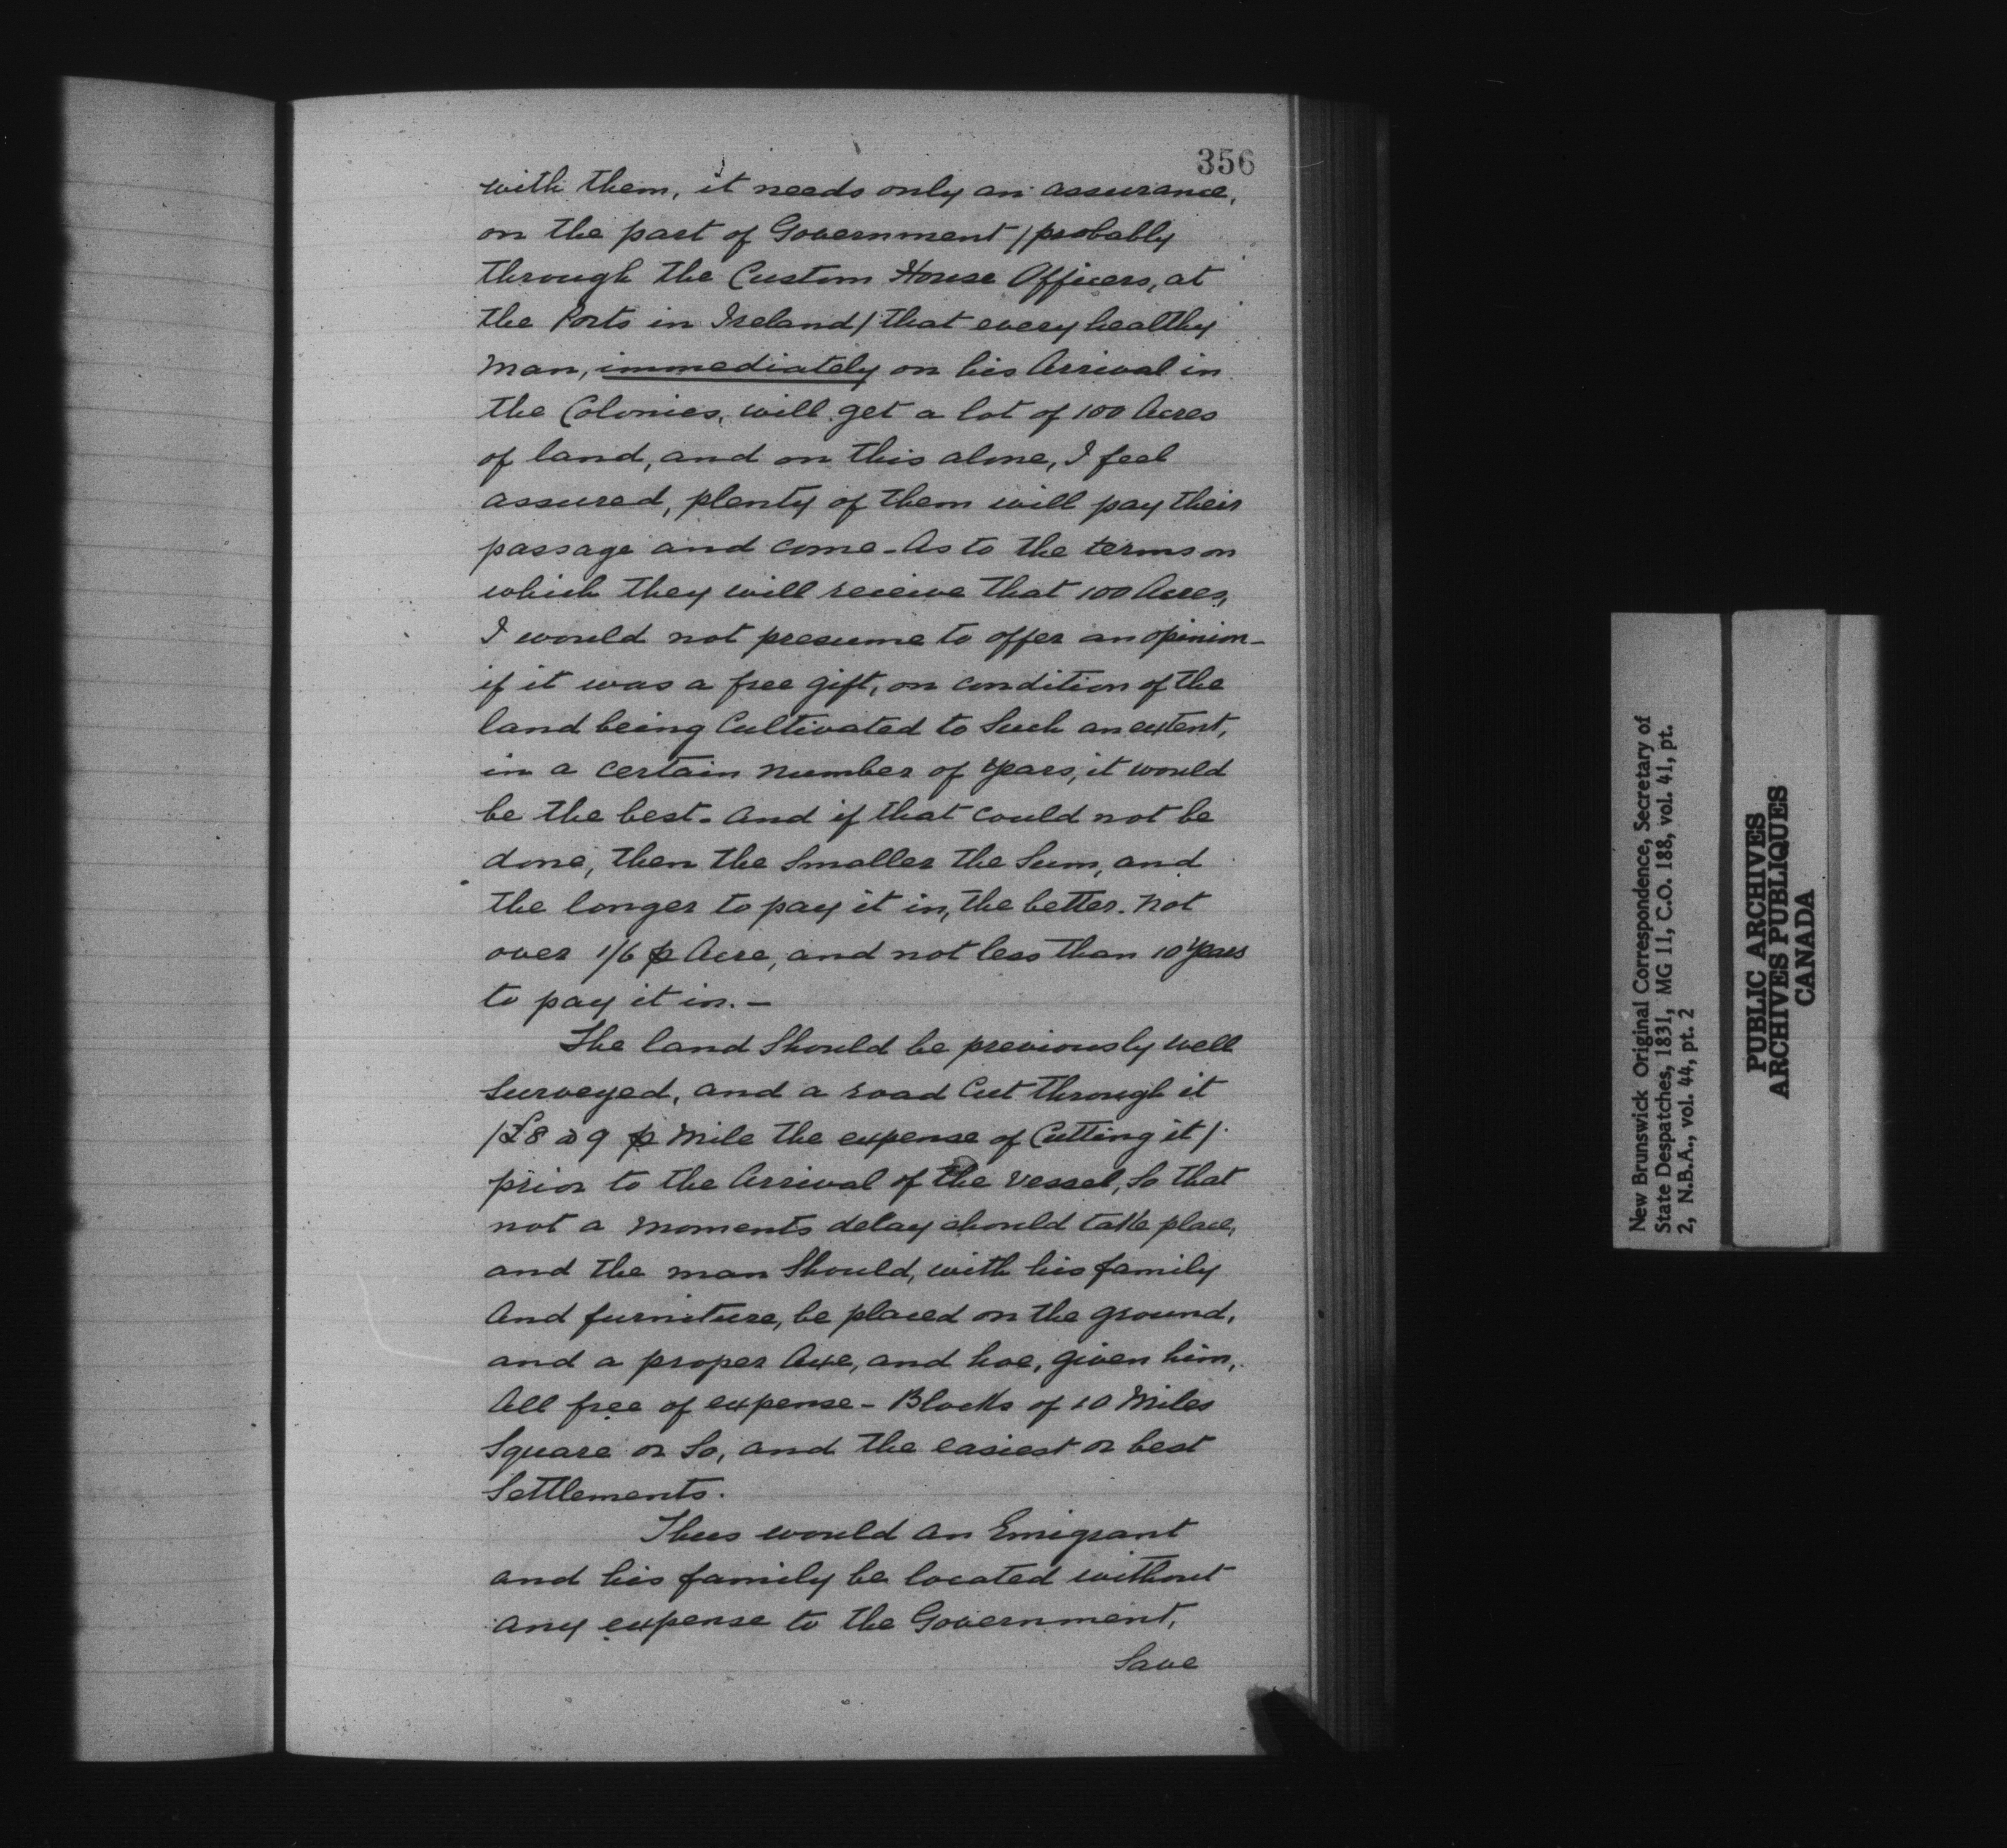 356
with them, it needs only an assurance,
on the part of Government /probably
through the Custom House Officers, at
the Ports in Ireland/ that every healthy
man, immediately on his Arrival in
the Colonies, will get a lot of 100 Acres
of land, and on this alone, I feel
assured, plenty of them will pay their
passage and come - As to the terms on
which they will receive that 100 Acres,
I would not presume to offer an opinion -
if it was a free gift, on condition of the
land being Cultivated to Such an extent,
in a certain number of Years, it would
be the best. And if that could not be
done, then the Smaller the Sum, and
the longer to pay it in, the better. Not
over 1/6 ⅌ Acre, and not less than 10 Years
to pay it in. -
The land Should be previously well
Surveyed, and a road Cut through it
/£8 a 9 ⅌ Mile the expense of Cutting it/
prior to the Arrival of the Vessel, So that
not a moments delay should take place,
and the man Should, with his family
And furniture, be placed on the ground,
and a proper Axe, and hoe, given him,
All free of expense - Blocks of 10 Miles
Square or So, and the easiest or best
Settlements.
Thus would an Emigrant
and his family be located without
any expense to the Government,
Save
New Brunswick Original Correspondence, Secretary of
State Despatches, 1831, MG 11, C.O. 188, vol. 41, pt.
2, N.B.A., vol. 44, pt. 2
PUBLIC ARCHIVES
ARCHIVES PUBLIQUES
CANADA